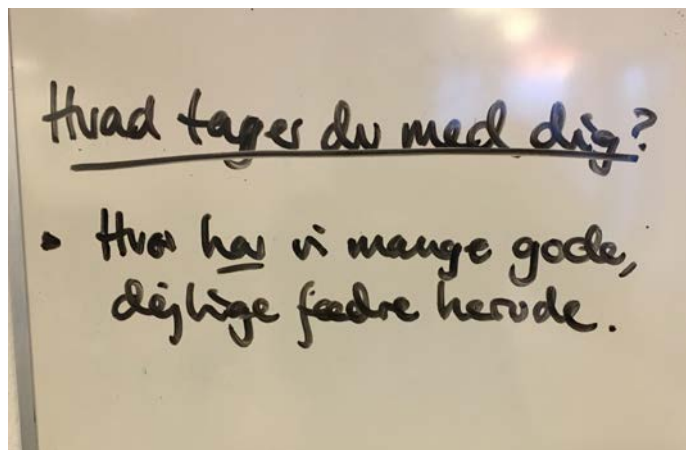 Hvad tager du med dig?
• Hvor har vi mange gode,
dejlige fædre herude.